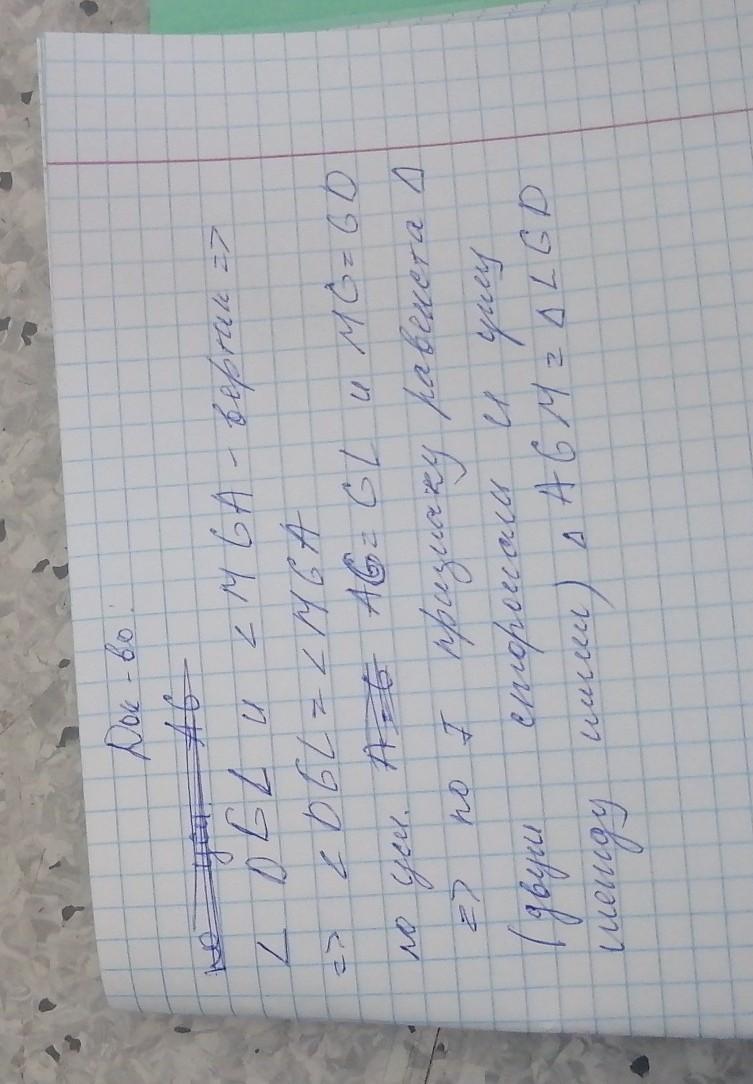 Док-во:
по усл. AG
∠ DGL и ∠ MGA - вертик =>
=> ∠ DGL = ∠ MGA
по усл. A=G AG = GL и MG = GD
=> по I признаку равенста Δ
(двум сторонами и углу
между ними) Δ AGM = Δ LGD